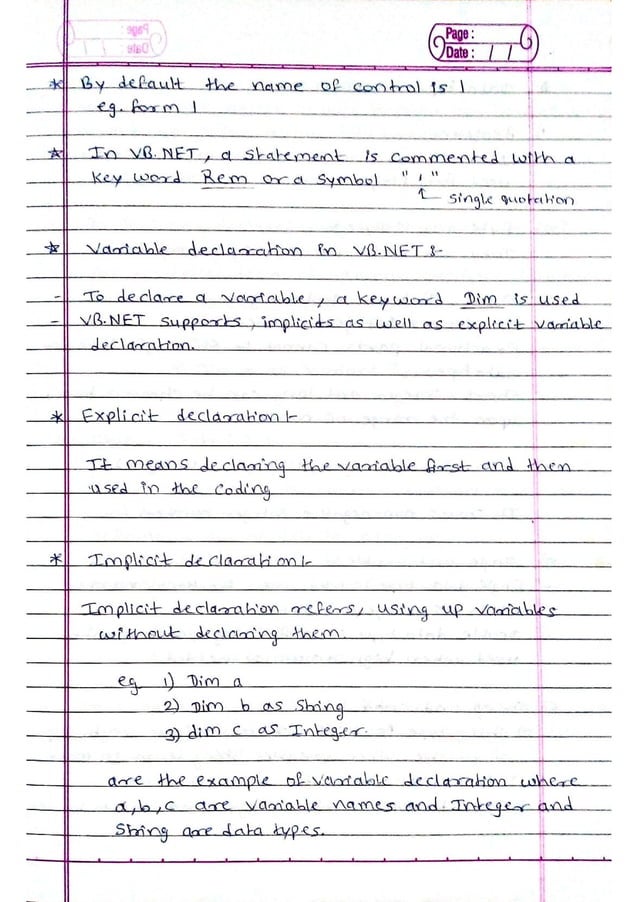 Page :
Date : / /
* By default the name of control is 1
eg. form 1
* In VB.NET, a statement is commented with a
key word Rem or a symbol " ' "
↑ single quotation
* Variable declaration in VB.NET :-
- To declare a variable, a keyword Dim is used
- VB.NET supports, implicits as well as explicit variable
declaration.
* Explicit declaration :-
It means declaring the variable first and then
used in the coding
* Implicit declaration :-
Implicit declaration refers, using up variables
without declaring them.
eg 1) Dim a
2) Dim b as String
3) dim c as Integer.
are the example of variable declaration where
a, b, c are variable names and Integer and
String are data types.